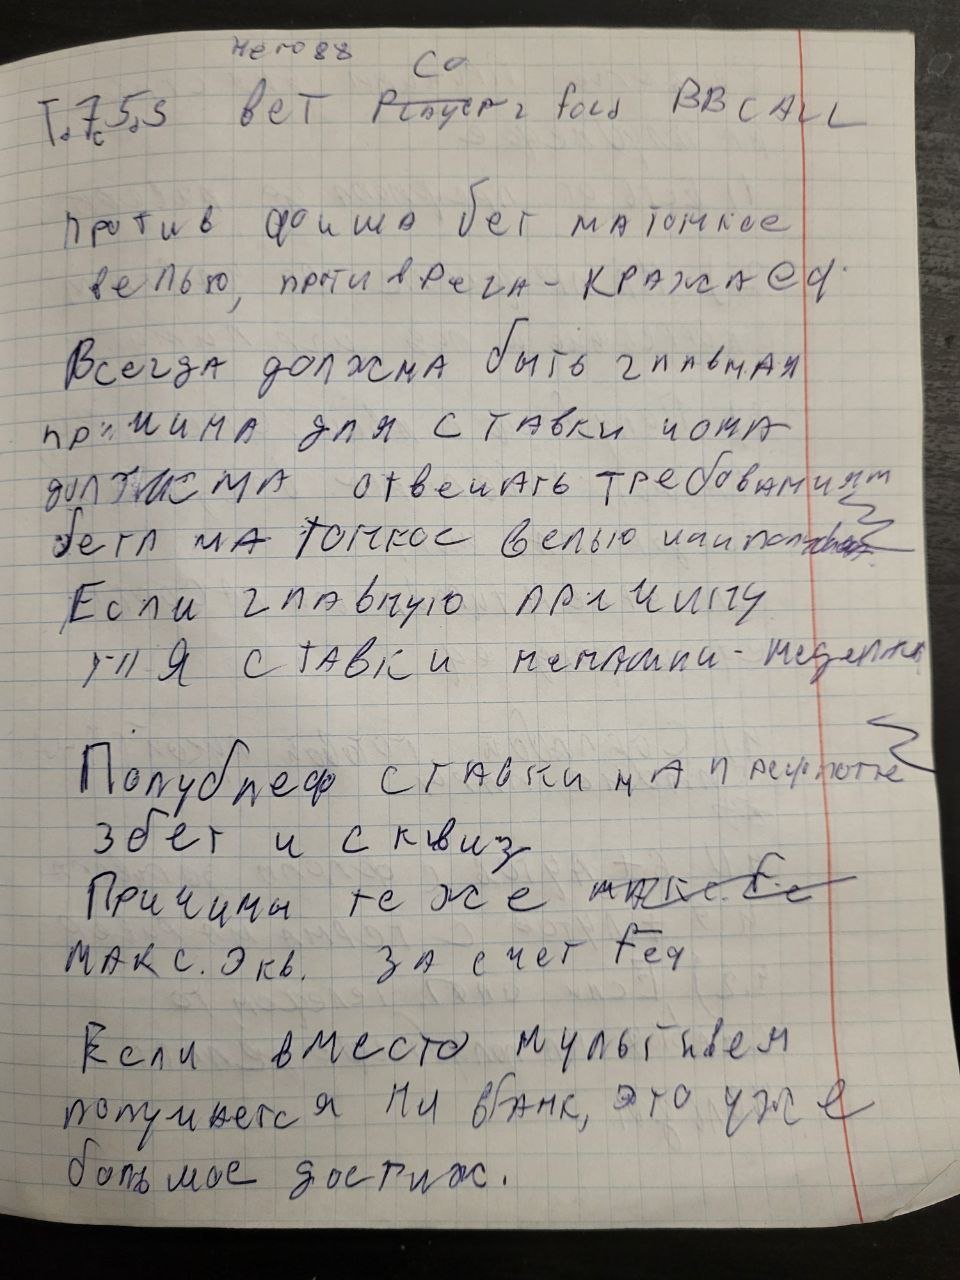 Hero 88 CO
T.7c5.s вет Player 2 fold BB CALL
против фиша бет на тонкое
велью, против рега - кража eq.
Всегда должна быть главная
причина для ставки и она
должна отвечать требованиям
бета на тонкое велью или
Если главную причину
для ставки не нашли - не делать
Полублеф ставки на префлопе
3бет и сквиз
Причины те же
макс. экв. за счет Feq
Если вместо мультивея
получается HU вбанк, это уже
большое достиж.